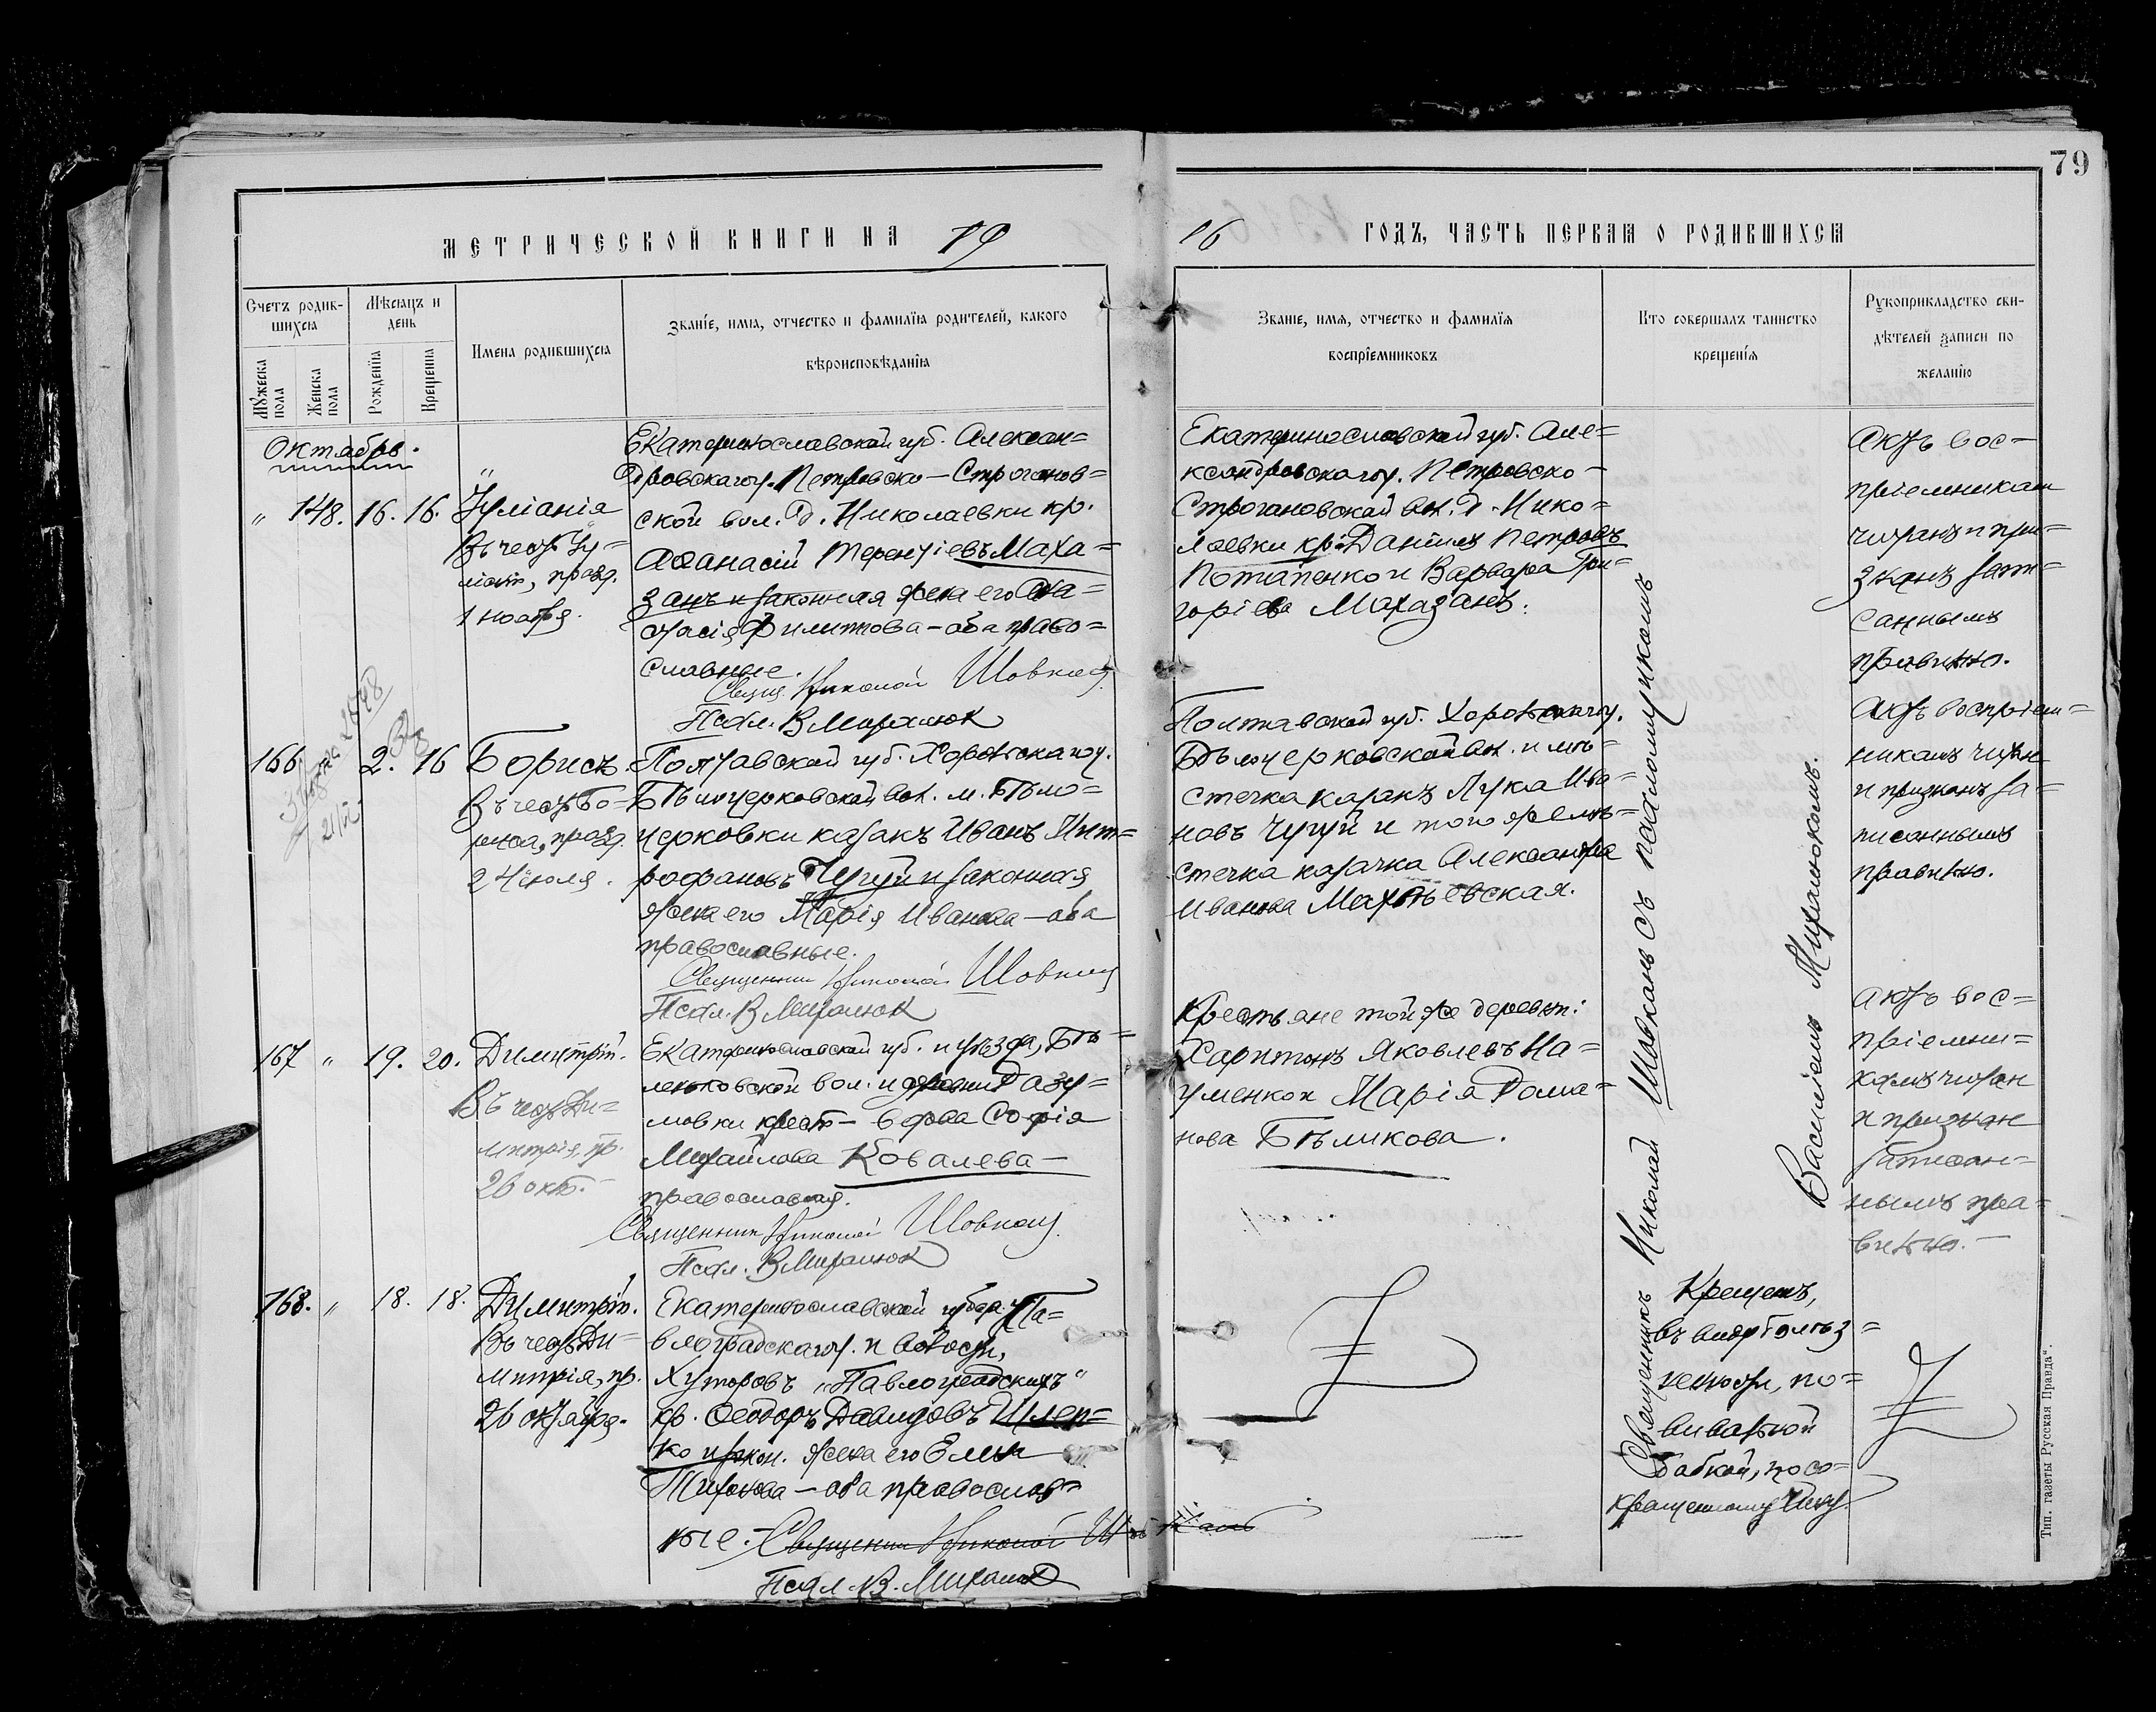 79
МЕТРИЧЕСКОЙ КНИГИ НА 19
16 ГОДЪ, ЧАСТЬ ПЕРВАЯ О РОДИВШИХСЯ
Счетъ родив-
шихся
Мѣсяцъ и
день
Мужеска
пола
Женска
пола
Рожденія
Крещенія
Имена родившихся
Званіе, имя, отчество и фамилія родителей, какого
вѣроисповѣданія
Званіе, имя, отчество и фамилія
воспріемниковъ
Кто совершалъ таинство
крещенія
Рукоприкладство сви-
дѣтелей записи по
желанію
Октябрь.
" 148. 16. 16. Іуліанія
Въ честь Іу=
ліаніи, празд.
1 ноября.
Екатеринославской губ. Алексан=
дровскаго у. Петровско-Строганов=
ской вол. д. Николаевки кр.
Аѳанасій Терентіевъ Маха=
занъ и законная жена его Ана=
стасія Филиппова - оба право=
славные.
Свящ. Николай Шовкань
Псал. В Михалюк
Екатеринославской губ. Але=
ксандровскаго у. Петровско-
Строгановской вол. д. Нико=
лаевки кр. Даніилъ Петровъ
Потапенко и Варвара Гри=
горіева Махазанъ.
Актъ вос=
пріемникам
читанъ и при=
знанъ запи=
саннымъ
правильно.
166. 2. 16 Борисъ.
Въ честь Бо=
риса, празд.
24 іюля.
Полтавской губ. Хорольскаго у.
Бѣлоцерковской вол. м. Бѣло=
церковки казакъ Иванъ Мит=
рофановъ Чугуй и законная
жена его Марія Иванова - оба
православные.
Священник Николай Шовкань
Псал. В Михалюк
Полтавской губ. Хорольскаго у.
Бѣлоцерковской вол. и мѣ=
стечка казакъ Лука Ива=
новъ Чугуй и того же мѣ=
стечка казачка Александра
Иванова Махньовская.
Актъ воспріем=
никамъ читан
и признанъ за=
писаннымъ
правильно.
167 " 19. 20. Димитрій.
Въ честь Ди=
митрія, пр.
26 окт.
Екатеринославской губ. и уѣзда, Бѣ=
леньковской вол. и деревни Разу=
мовки крест - вдова Софія
Михайлова Ковалева -
православная.
Священник Николай Шовкань
Псал. В Михалюк
Крестьяне той же деревни:
Харитонъ Яковлевъ На=
уменко и Марія Рома=
нова Бѣликова.
Актъ вос=
пріемни=
камъ читан
и признан
записан=
нымъ пра=
вильно.
168. " 18. 18. Димитрій.
Въ честь Ди=
митрія, пр.
26 октября.
Екатеринославской губер. Па=
влоградскаго у. и волости,
Хуторовъ "Павлоградскихъ"
кр. Ѳеодоръ Давидовъ Шлеп=
ко и закон. жена его Елена
Тихонова - оба православ=
ные. Священник Николай Шовкань
Псал. В. Михалюк
Крещенъ,
въ виду болѣз=
ненности, по=
вивальной
бабкой, по со=
кращенному чину
Священникъ Николай Шовкань съ псаломщикомъ
Василіемъ Михалюкомъ.
Тип. газеты Русская Правда".